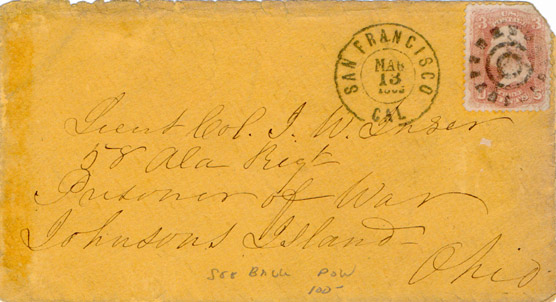 SAN FRANCISCO
MAR
13
CAL
3
Lieut Col. J. W. Inzer
58 Ala Regt
Prisoner of War
Johnsons Island
Ohio
SEE BACK POW
100-